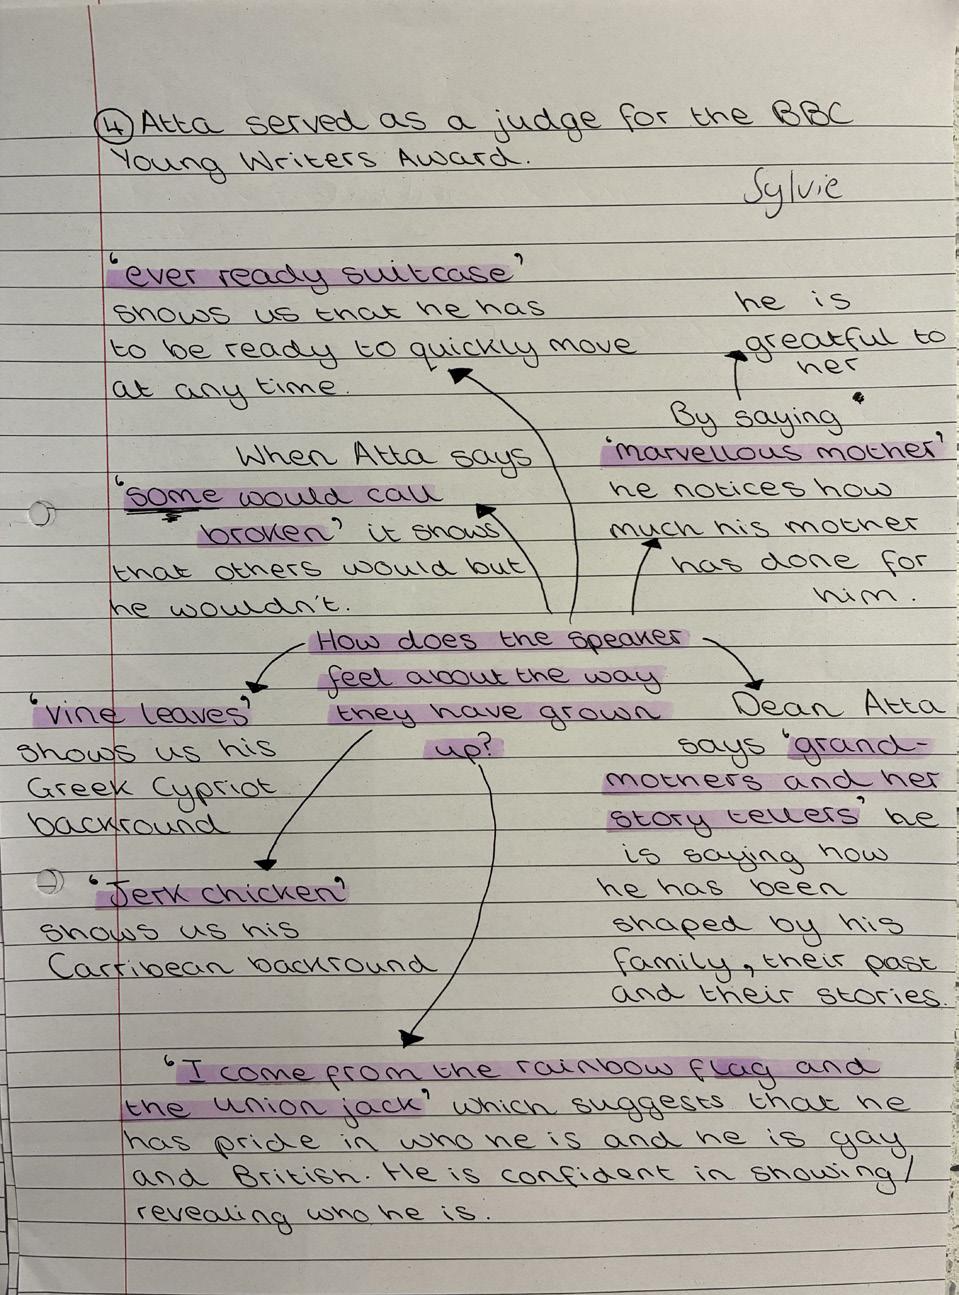 4 Atta served as a judge for the BBC
Young Writers Award.
Sylvie
'ever ready suitcase'
shows us that he has
to be ready to quickly move
at any time.
he is
greatful to
her
By saying
'marvellous mother'
he notices how
much his mother
has done for
him.
When Atta says
'some would call
broken' it shows
that others would but
he wouldn't.
How does the speaker
feel about the way
they have grown
up?
'vine leaves'
shows us his
Greek Cypriot
backround
Dean Atta
says 'grand-
mothers and her
story tellers' he
is saying how
he has been
shaped by his
family, their past
and their stories.
'Jerk chicken'
shows us his
Carribean backround
'I come from the rainbow flag and
the union jack' which suggests that he
has pride in who he is and he is gay
and British. He is confident in showing/
revealing who he is.